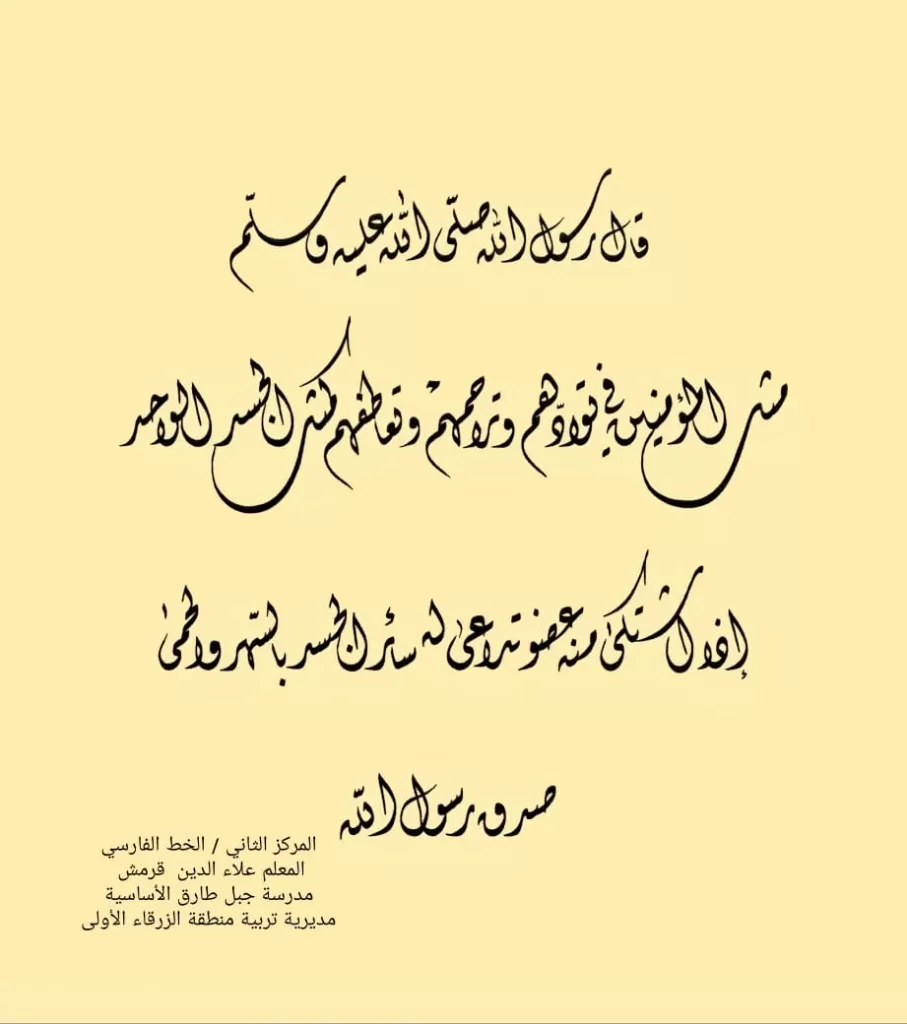 قال رسول الله صلّى الله عليه وسلّم
مثل المؤمنين في توادّهم وتراحمهم وتعاطفهم كمثل الجسد الواحد
إذا اشتكى منه عضو تداعى له سائر الجسد بالسّهر والحمى
صدق رسول الله
المركز الثاني / الخط الفارسي
المعلم علاء الدين قرمش
مدرسة جبل طارق الأساسية
مديرية تربية منطقة الزرقاء الأولى